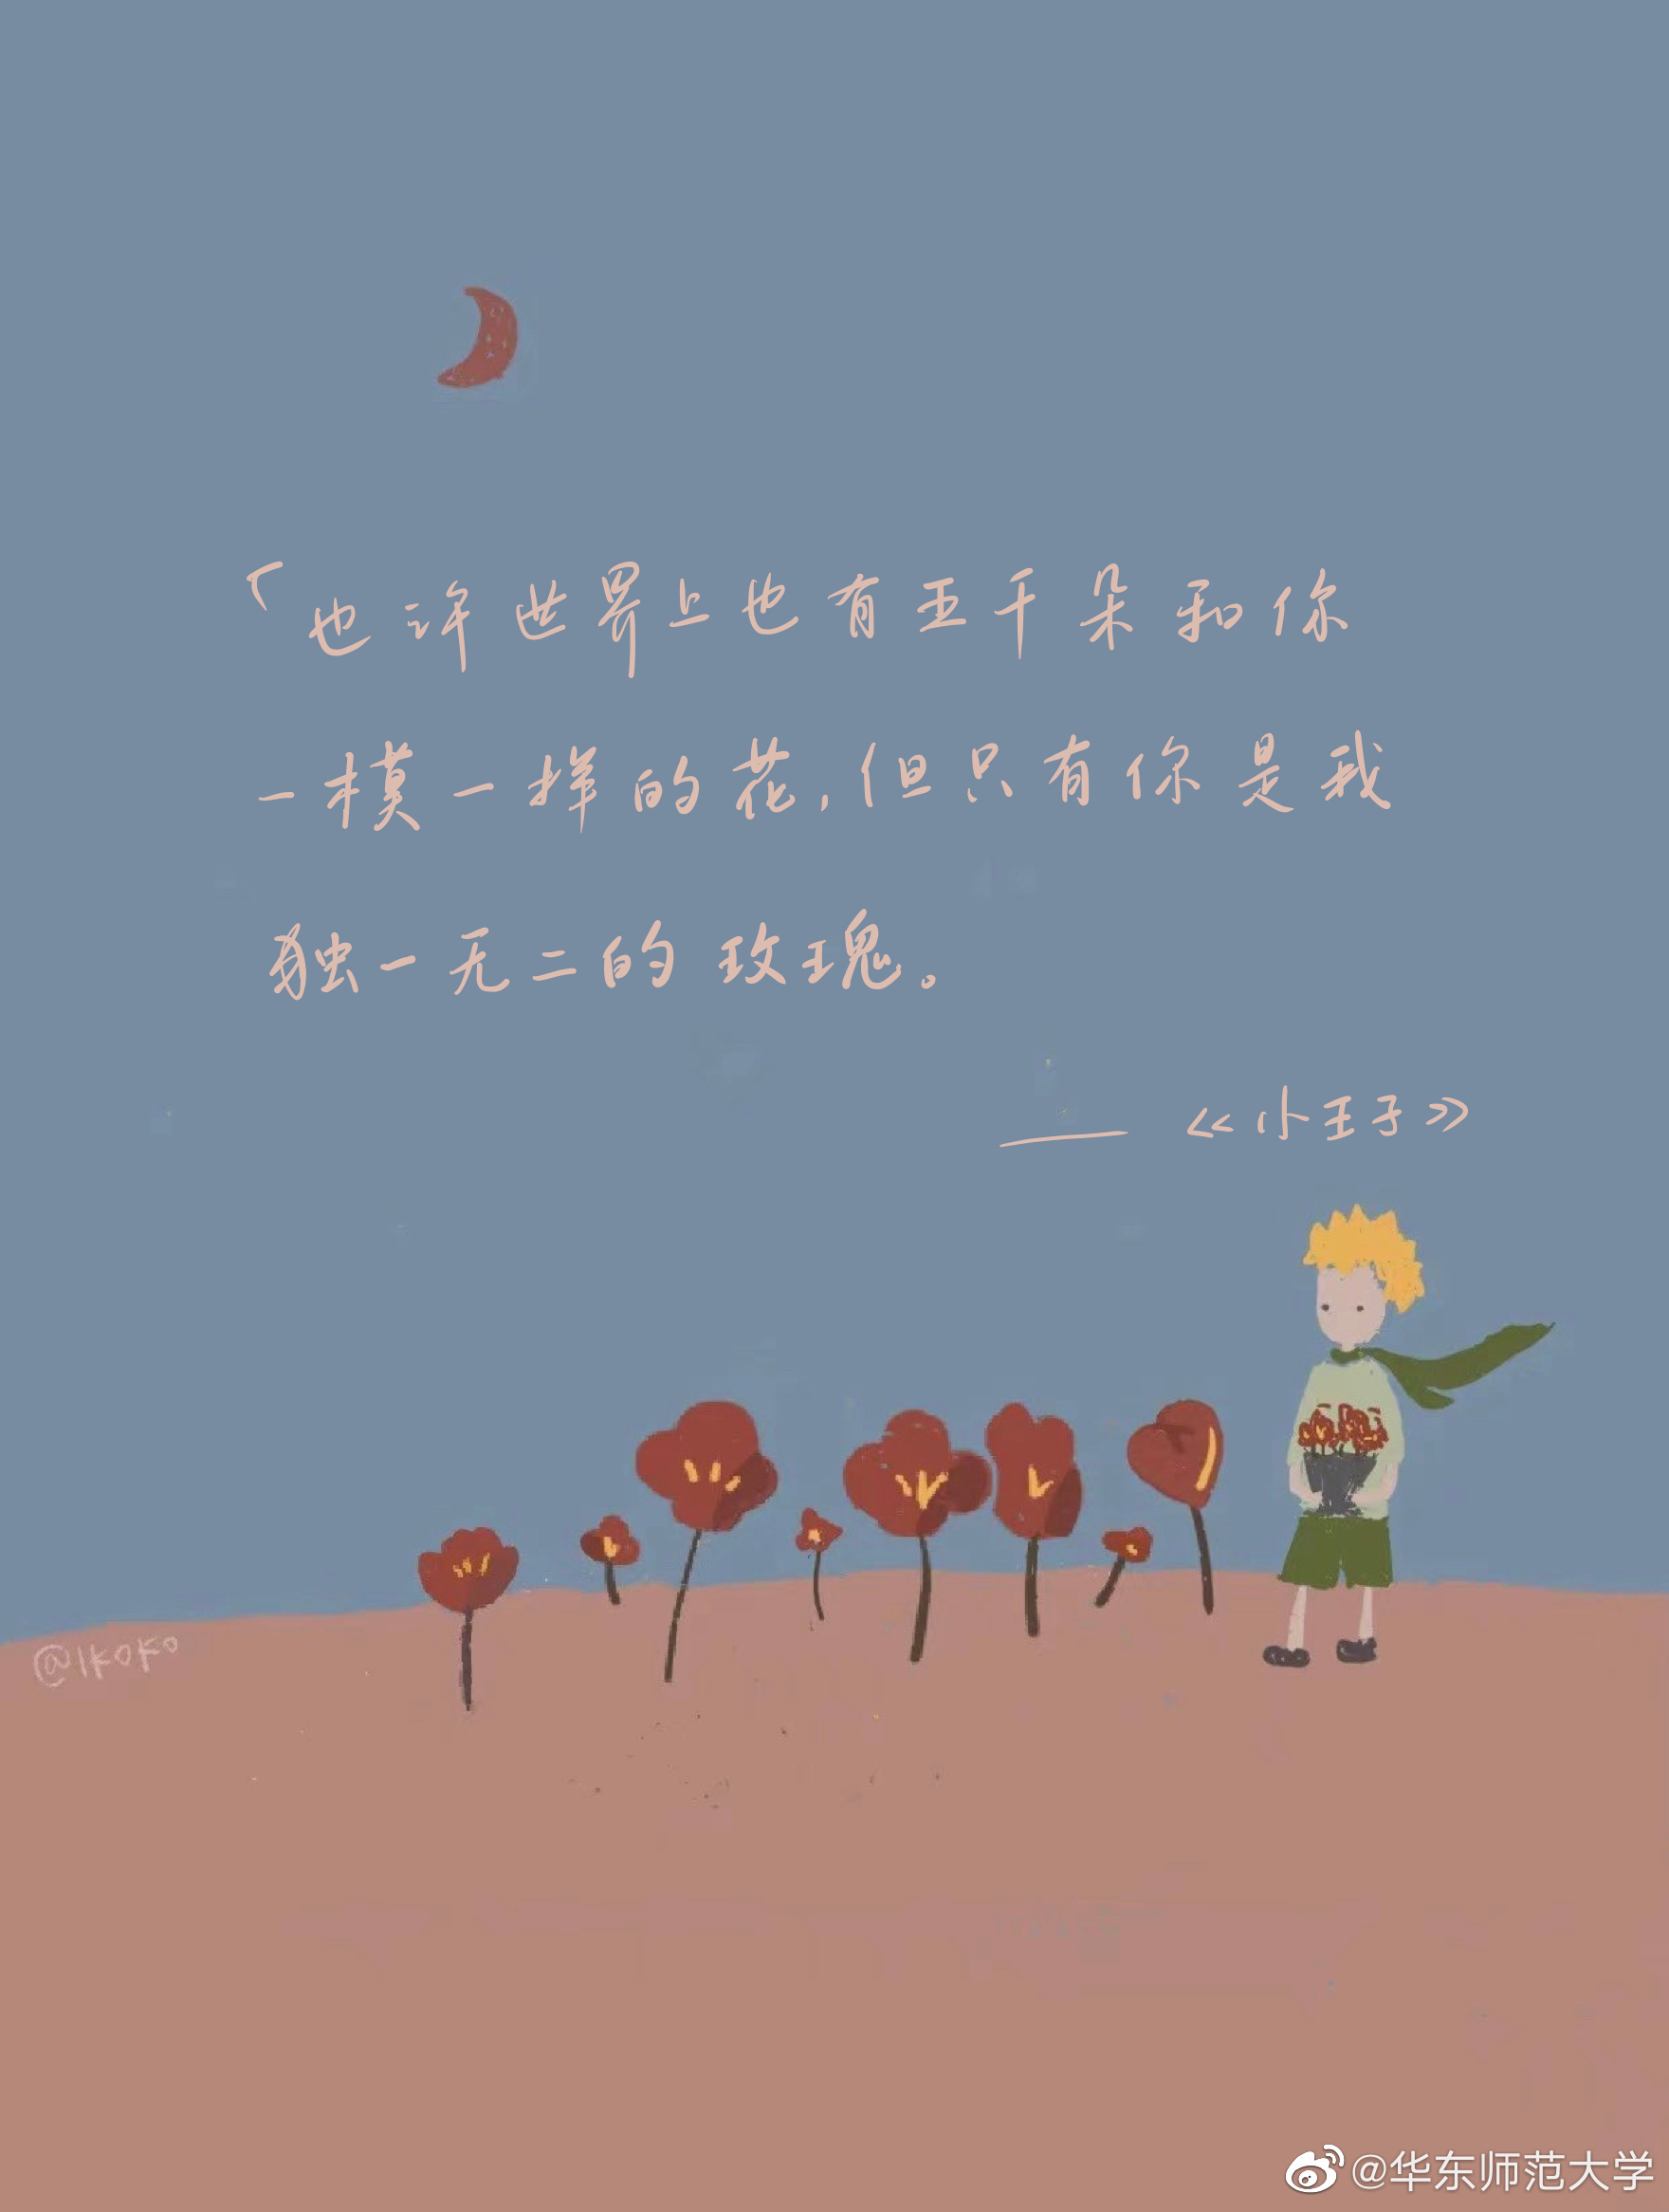 「也许世界上也有五千朵和你
一模一样的花,但只有你是我
独一无二的玫瑰。
——《小王子》
@1KOKO
@华东师范大学